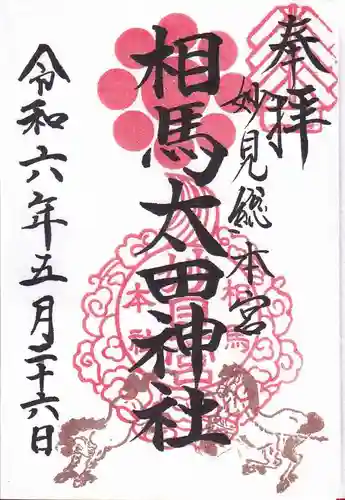 奉拝
妙見総本宮
相馬太田神社
令和六年五月二十六日